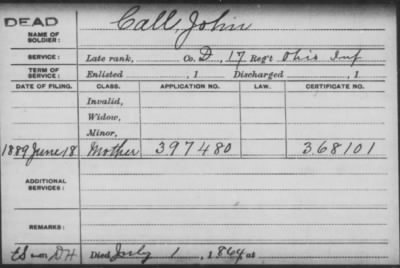 DEAD
NAME OF SOLDIER: Call, John
SERVICE: Late rank, Co. D, 17 Reg't Ohio Inf
TERM OF SERVICE: Enlisted , 1 Discharged , 1
DATE OF FILING. CLASS. APPLICATION NO. LAW. CERTIFICATE NO.
Invalid,
Widow,
Minor,
1889 June 18 Mother 397480 368101
ADDITIONAL SERVICES:
REMARKS:
Died July 1 , 1864, at